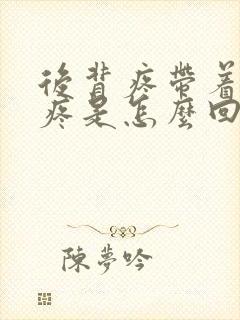 後背疼帶着
疼是怎麼回
陳夢吟